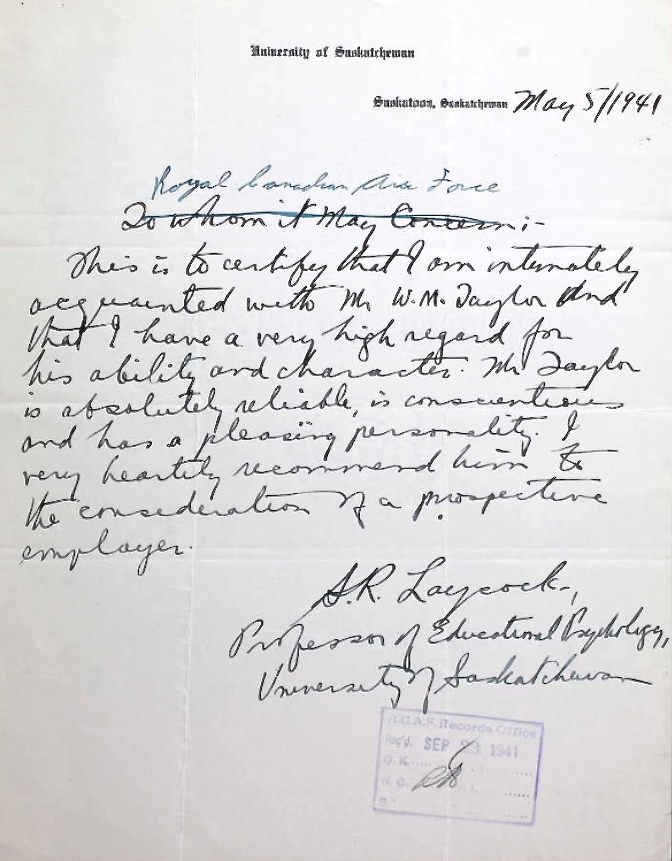 University of Saskatchewan
Saskatoon, Saskatchewan May 5/1941
Royal Canadian Air Force
To whom it May Concern:-
This is to certify that I am intimately
acquainted with Mr W.M. Taylor and
that I have a very high regard for
his ability and character. Mr Taylor
is absolutely reliable, is conscientious
and has a pleasing personality. I
very heartily recommend him to
the consideration of a prospective
employer.
S.R. Laycock,
Professor of Educational Psychology,
University of Saskatchewan
R.C.A.F. Records Office
Rec'd. SEP 23 1941
O.K.